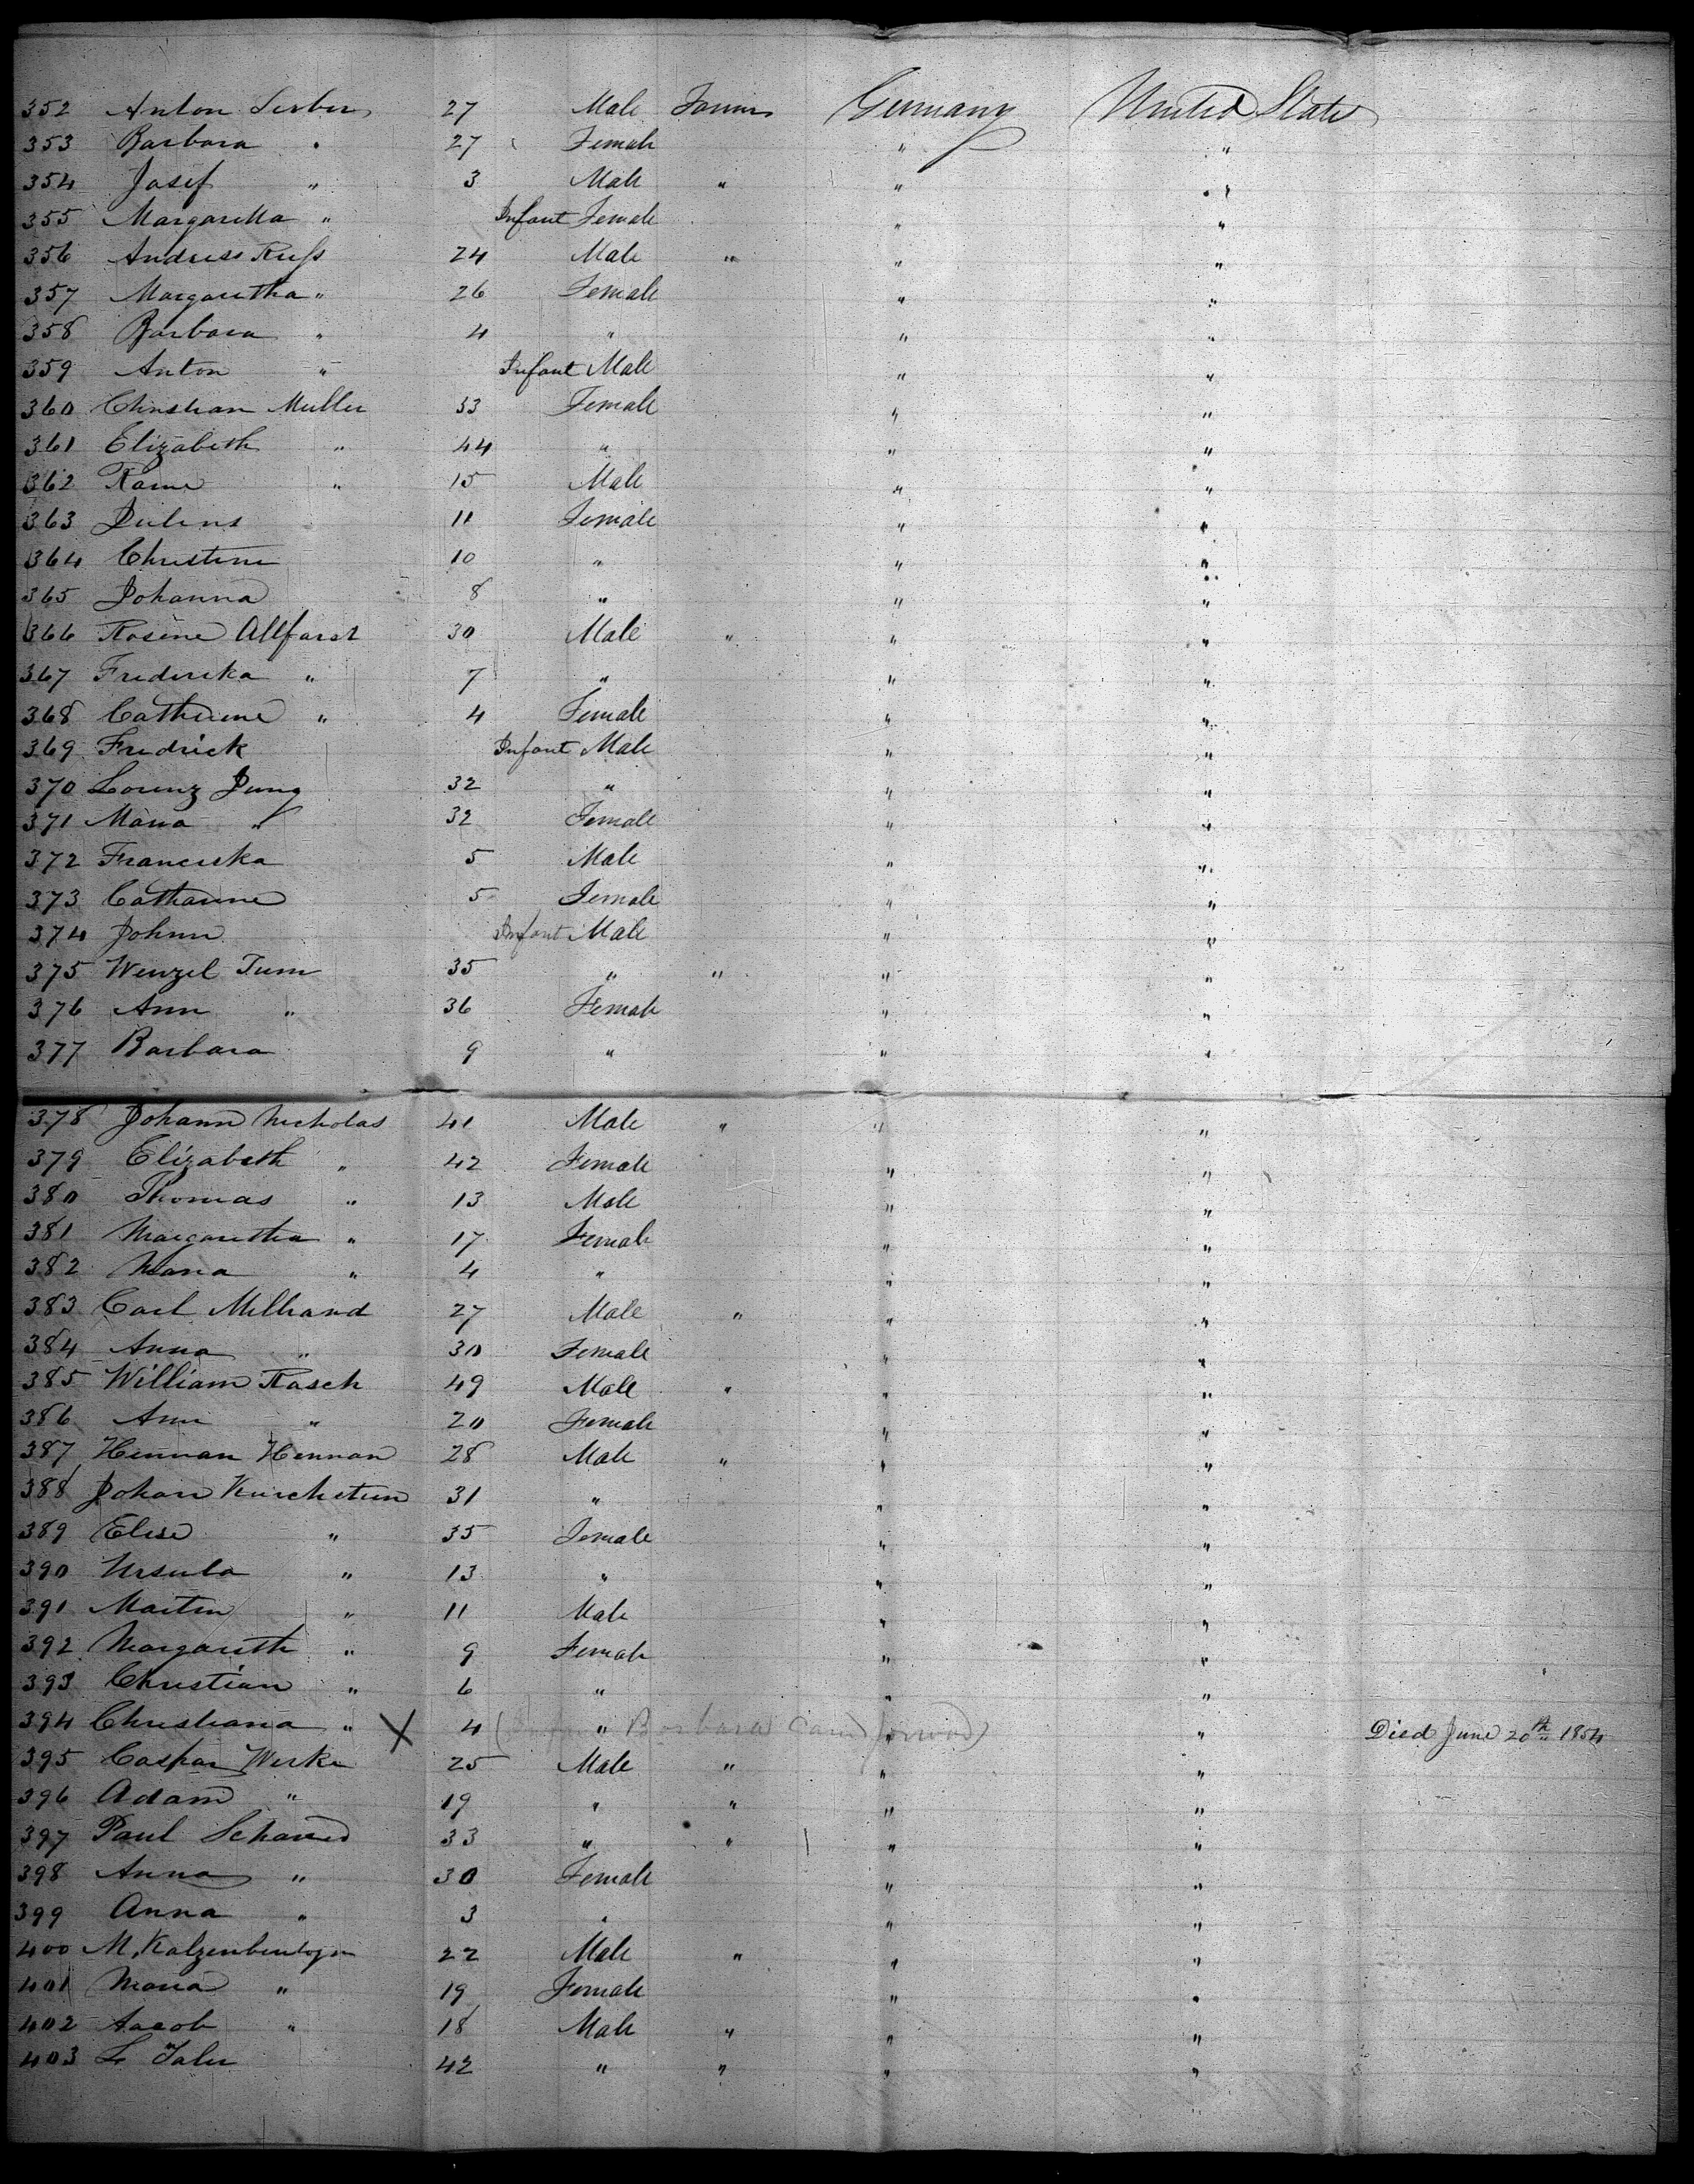 352 Anton Serber 27 Male Farmer Germany United States
353 Barbara " 27 Female " "
354 Josef " 3 Male " " "
355 Margaretta " Infant Female " "
356 Andress Russ 24 Male " " "
357 Margaretha " 26 Female " "
358 Barbara " 4 " " "
359 Anton " Infant Male " "
360 Christian Muller 53 Female " "
361 Elizabeth " 44 " " "
362 " 15 Male " "
363 11 Female " "
364 Christine 10 " " "
365 Johanna 8 " " "
366 Rosine Allfarst 30 Male " " "
367 Frederika " 7 " " "
368 Catherine " 4 Female " "
369 Fredrick Infant Male " "
370 Lorenz Jung 32 " " "
371 Maria " 32 Female " "
372 Franciska 5 Male " "
373 Catharine 5 Female " "
374 Johnn Infant Male " "
375 Wenzel Tum 35 " " " "
376 Ann " 36 Female " "
377 Barbara 9 " " "
378 Johann Nicholas 41 Male " " "
379 Elizabeth " 42 Female " "
380 Thomas " 13 Male " "
381 Margaretha " 17 Female " "
382 Maria " 4 " " "
383 Carl Milhand 27 Male " " "
384 Anna " 30 Female " "
385 William Rasch 49 Male " " "
386 Ann " 20 Female " "
387 Herman Herman 28 Male " " "
388 Johan 31 " " "
389 Elise " 35 Female " "
390 Ursula " 13 " " "
391 Martin " 11 Male " "
392 Margareth " 9 Female " "
393 Christian " 6 " " "
394 Christiana " X 4 (Infant " Barbara " " Died June 20th 1854
395 Caspar Werke 25 Male " " "
396 Adam " 19 " " " "
397 Paul 33 " " " "
398 Anna " 30 Female " "
399 Anna " 3 " " "
400 M. Kalzenbentogen 22 Male " " "
401 Maria " 19 Female " "
402 Jacob " 18 Male " " "
403 L 42 " " " "